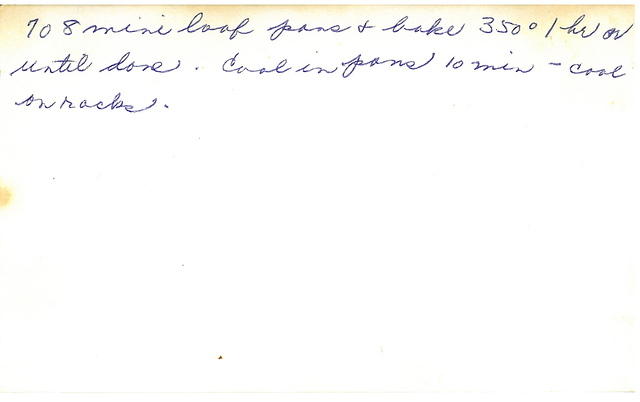 7 o 8 mini loaf pans & bake 350° 1 hr or
until done. Cool in pans 10 min - cool
on racks.